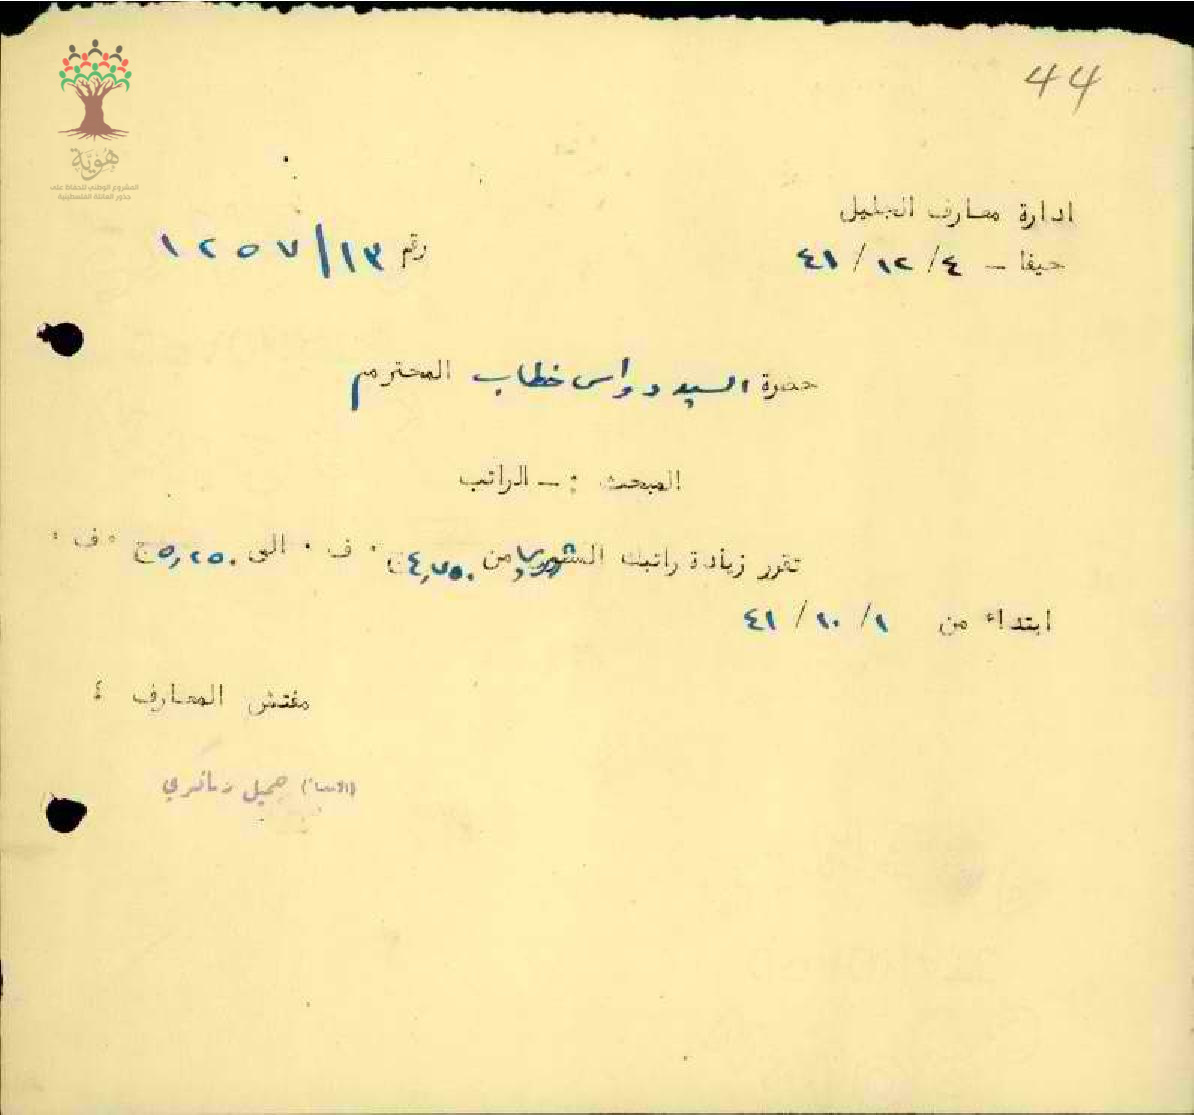 44
هُوِيَّة
المشروع الوطني للحفاظ على
جذور العائلة الفلسطينية
ادارة معارف الجليل
حيفا - ٤/ ١٢/ ٤١
رقم ١٣/ ١٢٥٧
حضرة السيد دواس خطاب المحترم
المبحث :- الراتب
تقرر زيادة راتبك الشهري من ٤,٧٥٠ج٠ ف ٠ الى ٥,٢٥٠ج ٠ ف ٠
ابتداء من ١/ ١٠/ ٤١
مفتش المعارف ؛
جميل